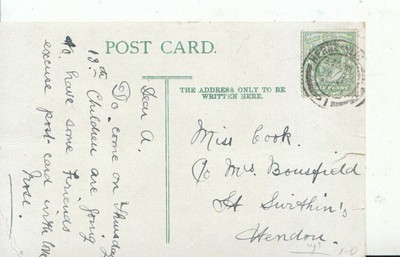 POST CARD.
THE ADDRESS ONLY TO BE
WRITTEN HERE.
Dear A.
Do come on Thursday
13th Children are going
to have some friends
excuse post-card with love
Rose.
Miss Cook.
c/o Mrs Bousfield
St Swithin's
Hendon